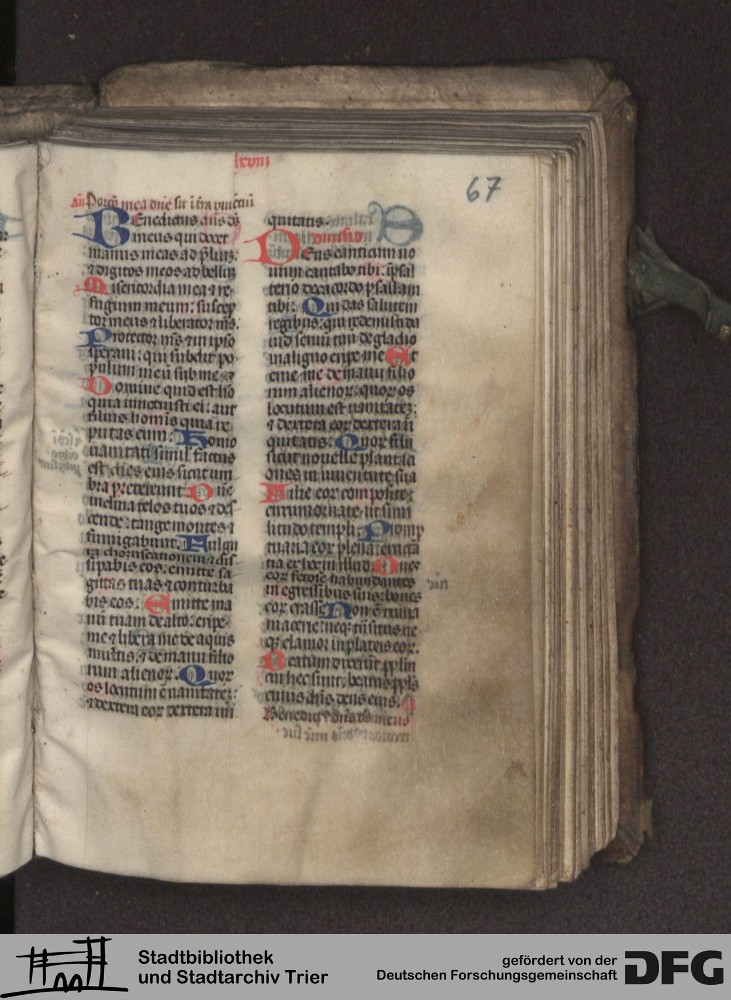 lxviii
67
añ Porcō mea dñe sit ī t̄ra viuētiū
Benedictus dñs ds̄
meus qui docet
manus meas ad p̄liuȝ:
⁊ digitos meos ad belluȝ
Misericordia mea ⁊ re-
fugium meum: suscep
tor meus ⁊ liberator mꝰs.
Protector mꝰs ⁊ in ipso
speraui: qui subdit po-
pulum meū sub me.
Domine quid est hō
quia innotuisti ei: aut
filius homīs quia re
putas eum: Homo
uanitati simil' factus
est: dies eius sicut um
bra p̄tereunt: Dñe
inclina celos tuos ⁊ des-
cende: tange montes ⁊
fumigabunt: Fulgu
ra choruscationem ⁊ dis-
sipabis eos: emitte sa
gittas tuas ⁊ conturba
bis eos: Emitte ma
nū tuam de alto: eripe
me ⁊ libera me de aquis
multis: ⁊ de manu filio
rum alienoꝝ. Quoꝝ
os locutum ē uanitateȝ:
⁊ dextera eoꝝ dextera ini
quitatis.
Diuisio
Deus canticum no
uum cantabo tibi: ī psal
terio decacordo psallam
tibi: Qui das salutem
regibus: qui redemisti da
uid seruū tuū de gladio
maligno eripe me Et
erue me de manu filio
rum alienoꝝ: quoꝝ os
locutum est uanitateȝ:
⁊ dextera eoꝝ dextera ī
quitatis: Quoꝝ filii
sicut nouelle plantaci
ones in iuuentute sua
Filie eoꝝ composite:
circumornate ut simi
litudo templi: Promp
tuaria eoꝝ plena: eructā
tia ex hoc in illud: Oues
eoꝝ fetose habundantes
in egressibus suis: boues
eoꝝ crasse Non ē ruina
macerie: neqꝫ trāsitus ne
qꝫ clamor in plateis eoꝝ.
Beatum dixerūt pp̄lm
cui hec sunt: beatus pp̄ls
cuius dñs deus eius. a
Benedictꝰ dñs ds̄ meus
Stadtbibliothek
und Stadtarchiv Trier
gefördert von der
Deutschen Forschungsgemeinschaft
DFG